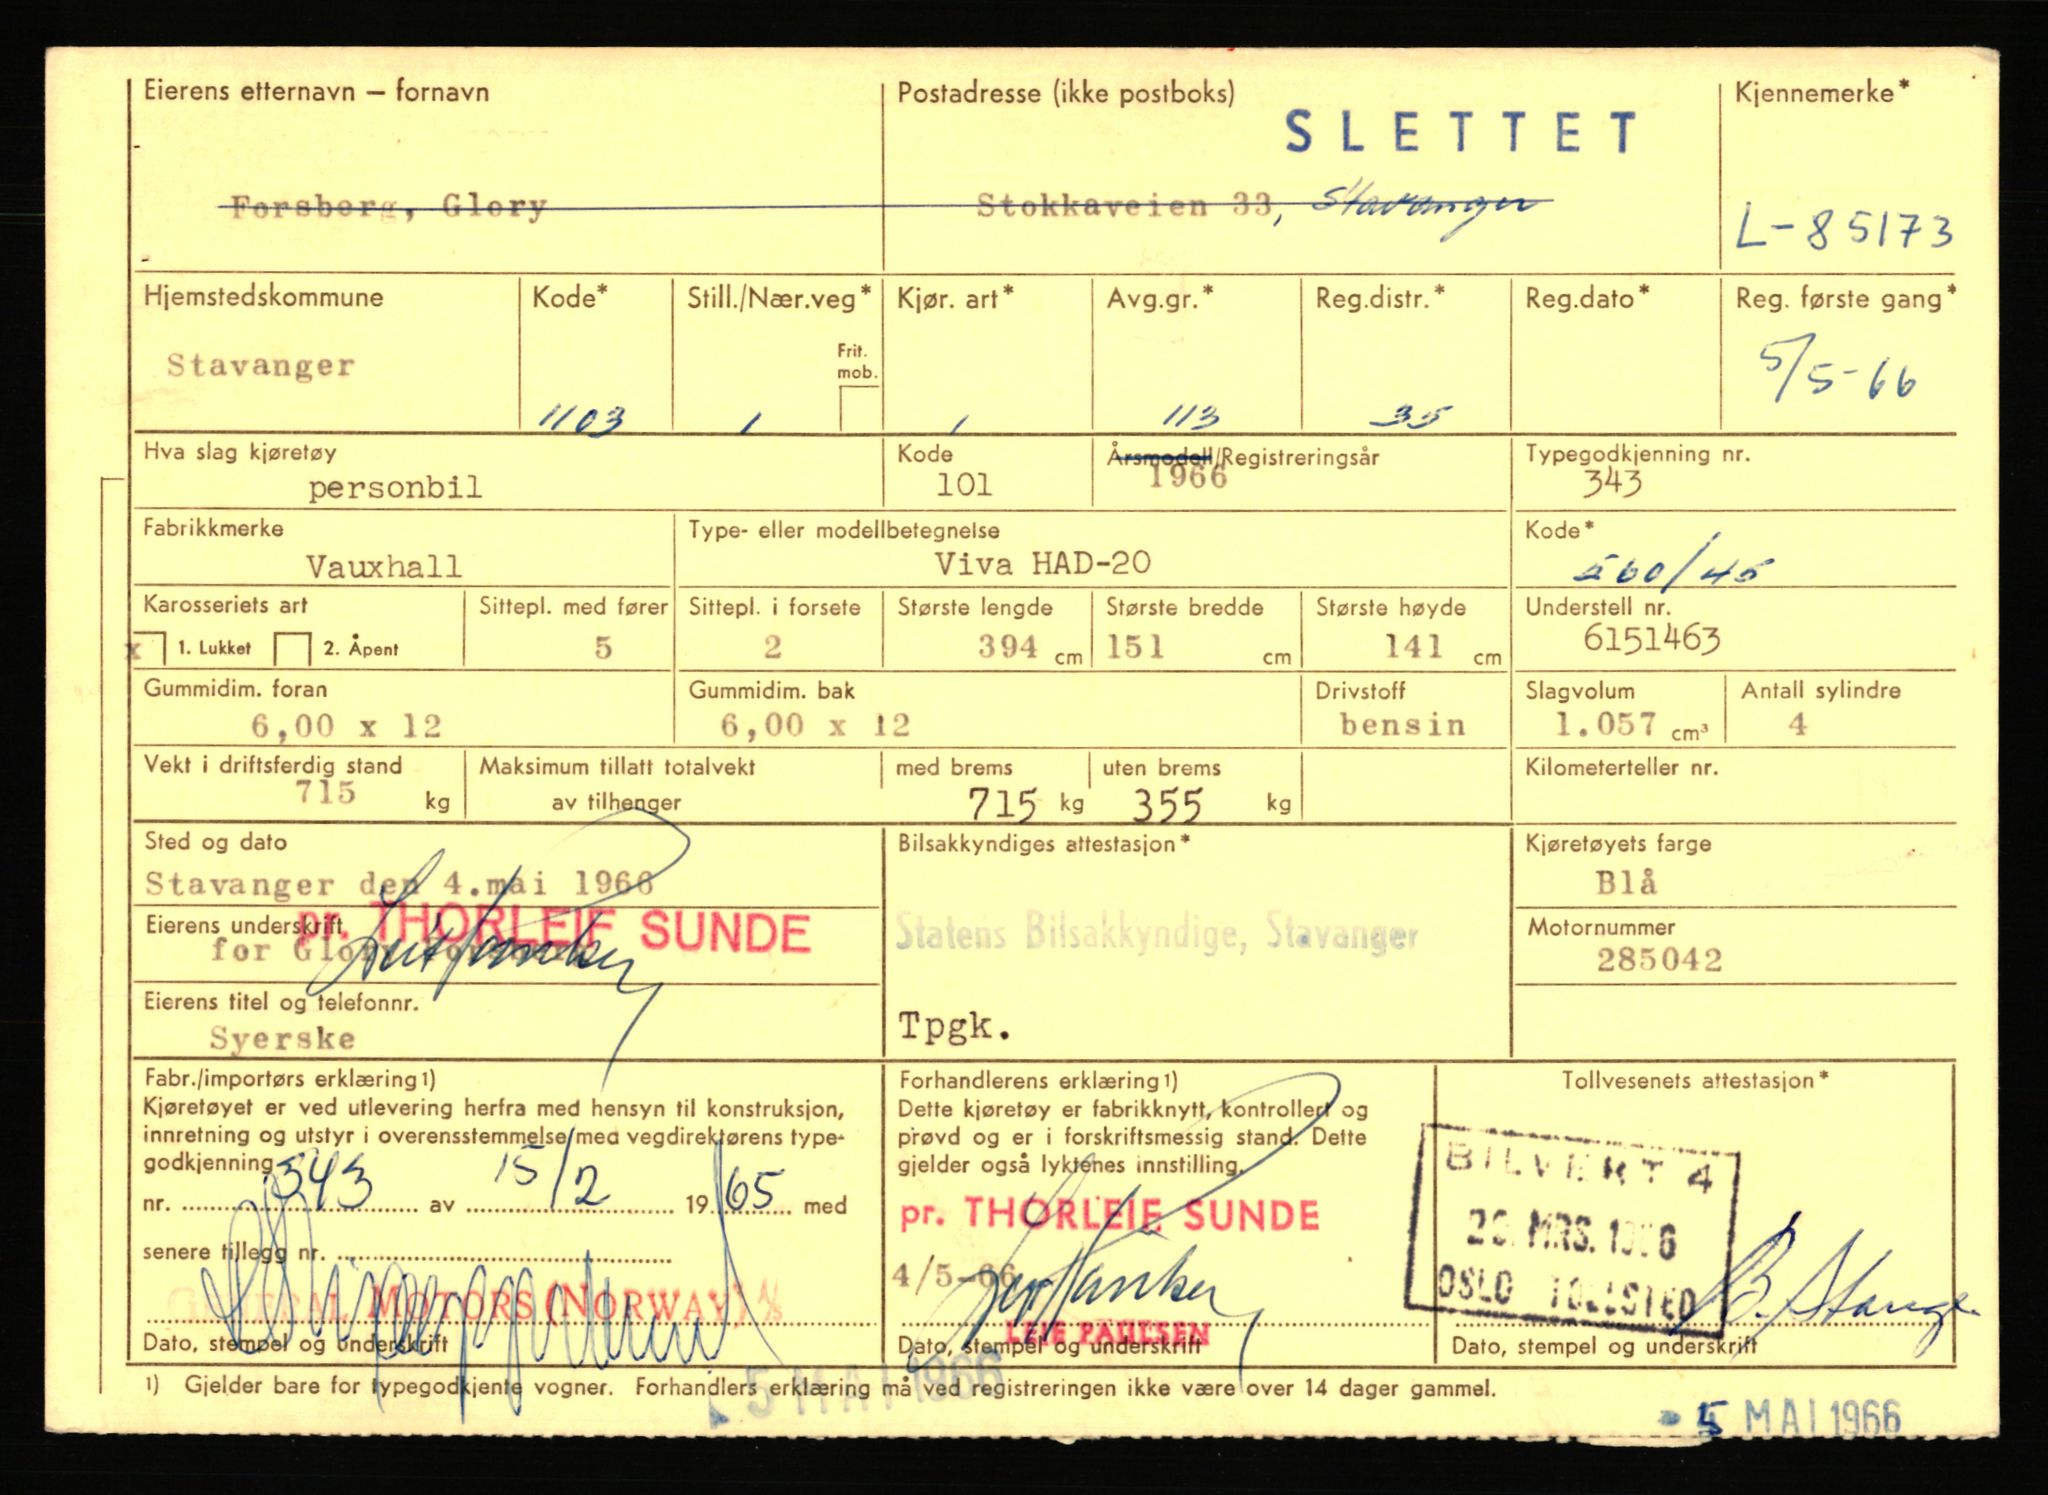 Eierens etternavn – fornavn
Postadresse (ikke postboks)
Kjennemerke*
SLETTET
Forsberg, Glory
Stokkaveien 33, Stavanger
L-85173
Hjemstedskommune
Kode*
Still./Nær.veg*
Kjør. art*
Avg.gr.*
Reg.distr.*
Reg.dato*
Reg. første gang*
Frit. mob.
Stavanger
1103
1
1
113
35
5/5-66
Hva slag kjøretøy
Kode
Årsmodell/Registreringsår
Typegodkjenning nr.
personbil
101
1966
343
Fabrikkmerke
Type- eller modellbetegnelse
Kode*
Vauxhall
Viva HAD-20
560/45
Karosseriets art
Sittepl. med fører
Sittepl. i forsete
Største lengde
Største bredde
Største høyde
Understell nr.
x 1. Lukket 2. Åpent
5
2
394 cm
151 cm
141 cm
6151463
Gummidim. foran
Gummidim. bak
Drivstoff
Slagvolum
Antall sylindre
6,00 x 12
6,00 x 12
bensin
1.057 cm³
4
Vekt i driftsferdig stand
Maksimum tillatt totalvekt
med brems
uten brems
Kilometerteller nr.
715 kg
av tilhenger
715 kg
355 kg
Sted og dato
Bilsakkyndiges attestasjon*
Kjøretøyets farge
Stavanger den 4.mai 1966
Blå
Eierens underskrift
pr. THORLEIF SUNDE
Statens Bilsakkyndige, Stavanger
Motornummer
for Glory
285042
Eierens titel og telefonnr.
Syerske
Tpgk.
Fabr./importørs erklæring 1)
Kjøretøyet er ved utlevering herfra med hensyn til konstruksjon,
innretning og utstyr i overensstemmelse med vegdirektørens type-
godkjenning
nr. 343 av 15/2 1965 med
senere tillegg nr.
GENERAL MOTORS (NORWAY) A/S
Dato, stempel og underskrift
Forhandlerens erklæring 1)
Dette kjøretøy er fabrikknytt, kontrollert og
prøvd og er i forskriftsmessig stand. Dette
gjelder også lyktenes innstilling.
pr. THORLEIF SUNDE
4/5-66
LEIF PAULSEN
Dato, stempel og underskrift
Tollvesenets attestasjon*
BILVERT 4
MRS. 1966
OSLO TOLLSTED
B. Stange
Dato, stempel og underskrift
1) Gjelder bare for typegodkjente vogner. Forhandlers erklæring må ved registreringen ikke være over 14 dager gammel.
5 MAI 1966
5 MAI 1966